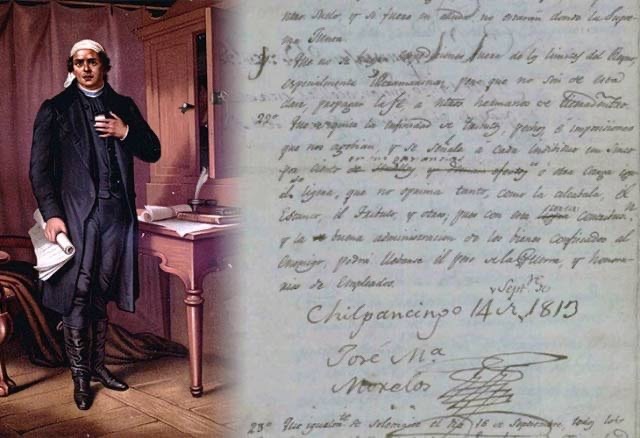 otro suelo, y si fuere en ayuda, no estarán donde la Supre
ma Junta.
21º Que no se hagan expediciones fuera de los limites del Reyno,
especialmente Ultramarinas, pero que no son de esta
clase, propagar la fé a nuestros hermanos de tierradentro.
22º Que se quite la infinidad de tributos, pechos é imposiciones
que nos agobian, y se señale a cada individuo un cinco
por ciento en sus ganancias
ú otra carga igual
ligera, que no oprima tanto, como la alcabala, el
Estanco, el Tributo, y otros, pues con esta
y la buena administracion de los bienes confiscados al
Enemigo, podrá llevarse el peso de la Guerra, y honora
rios de Empleados.
Chilpancingo 14 de Septre. de 1813
José Mª
Morelos
23º Que igualmte. se solemnice el dia 16 de Septiembre, todos los